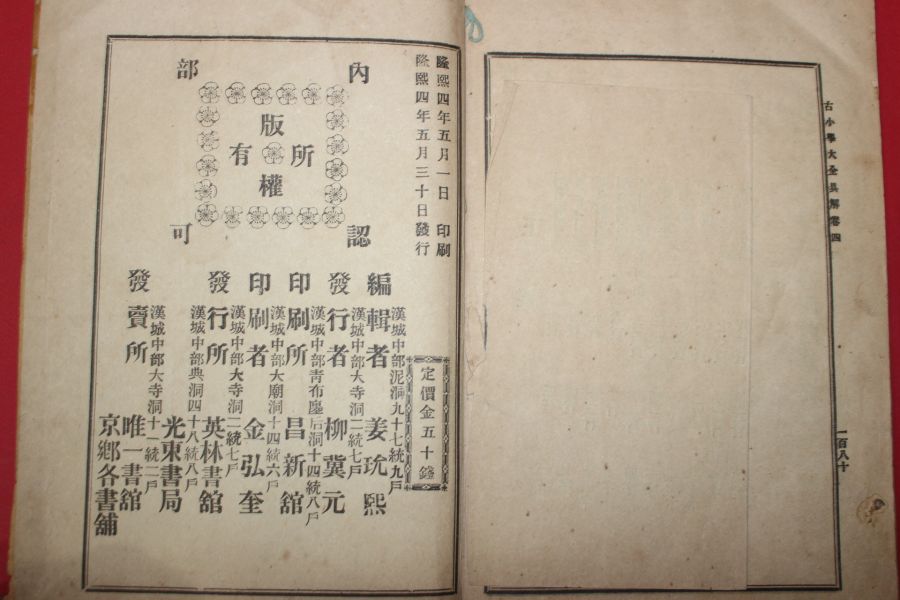 古小學大全具解卷四
一百八十
隆熙四年五月一日 印刷
隆熙四年五月三十日發行
定價金五十錢
內部認可
版權所有
漢城中部泥洞九十七統九戶
編輯者 姜玧熙
漢城中部大寺洞二統七戶
發行者 柳冀元
漢城中部靑布廛后洞十四統八戶
印刷所 昌新舘
漢城中部大廟洞十四統六戶
印刷者 金弘奎
漢城中部大寺洞二統七戶
發行所 英林書舘
漢城中部典洞四十八統八戶
光東書局
漢城中部大寺洞十一統二戶
發賣所 唯一書舘
京鄕各書舖